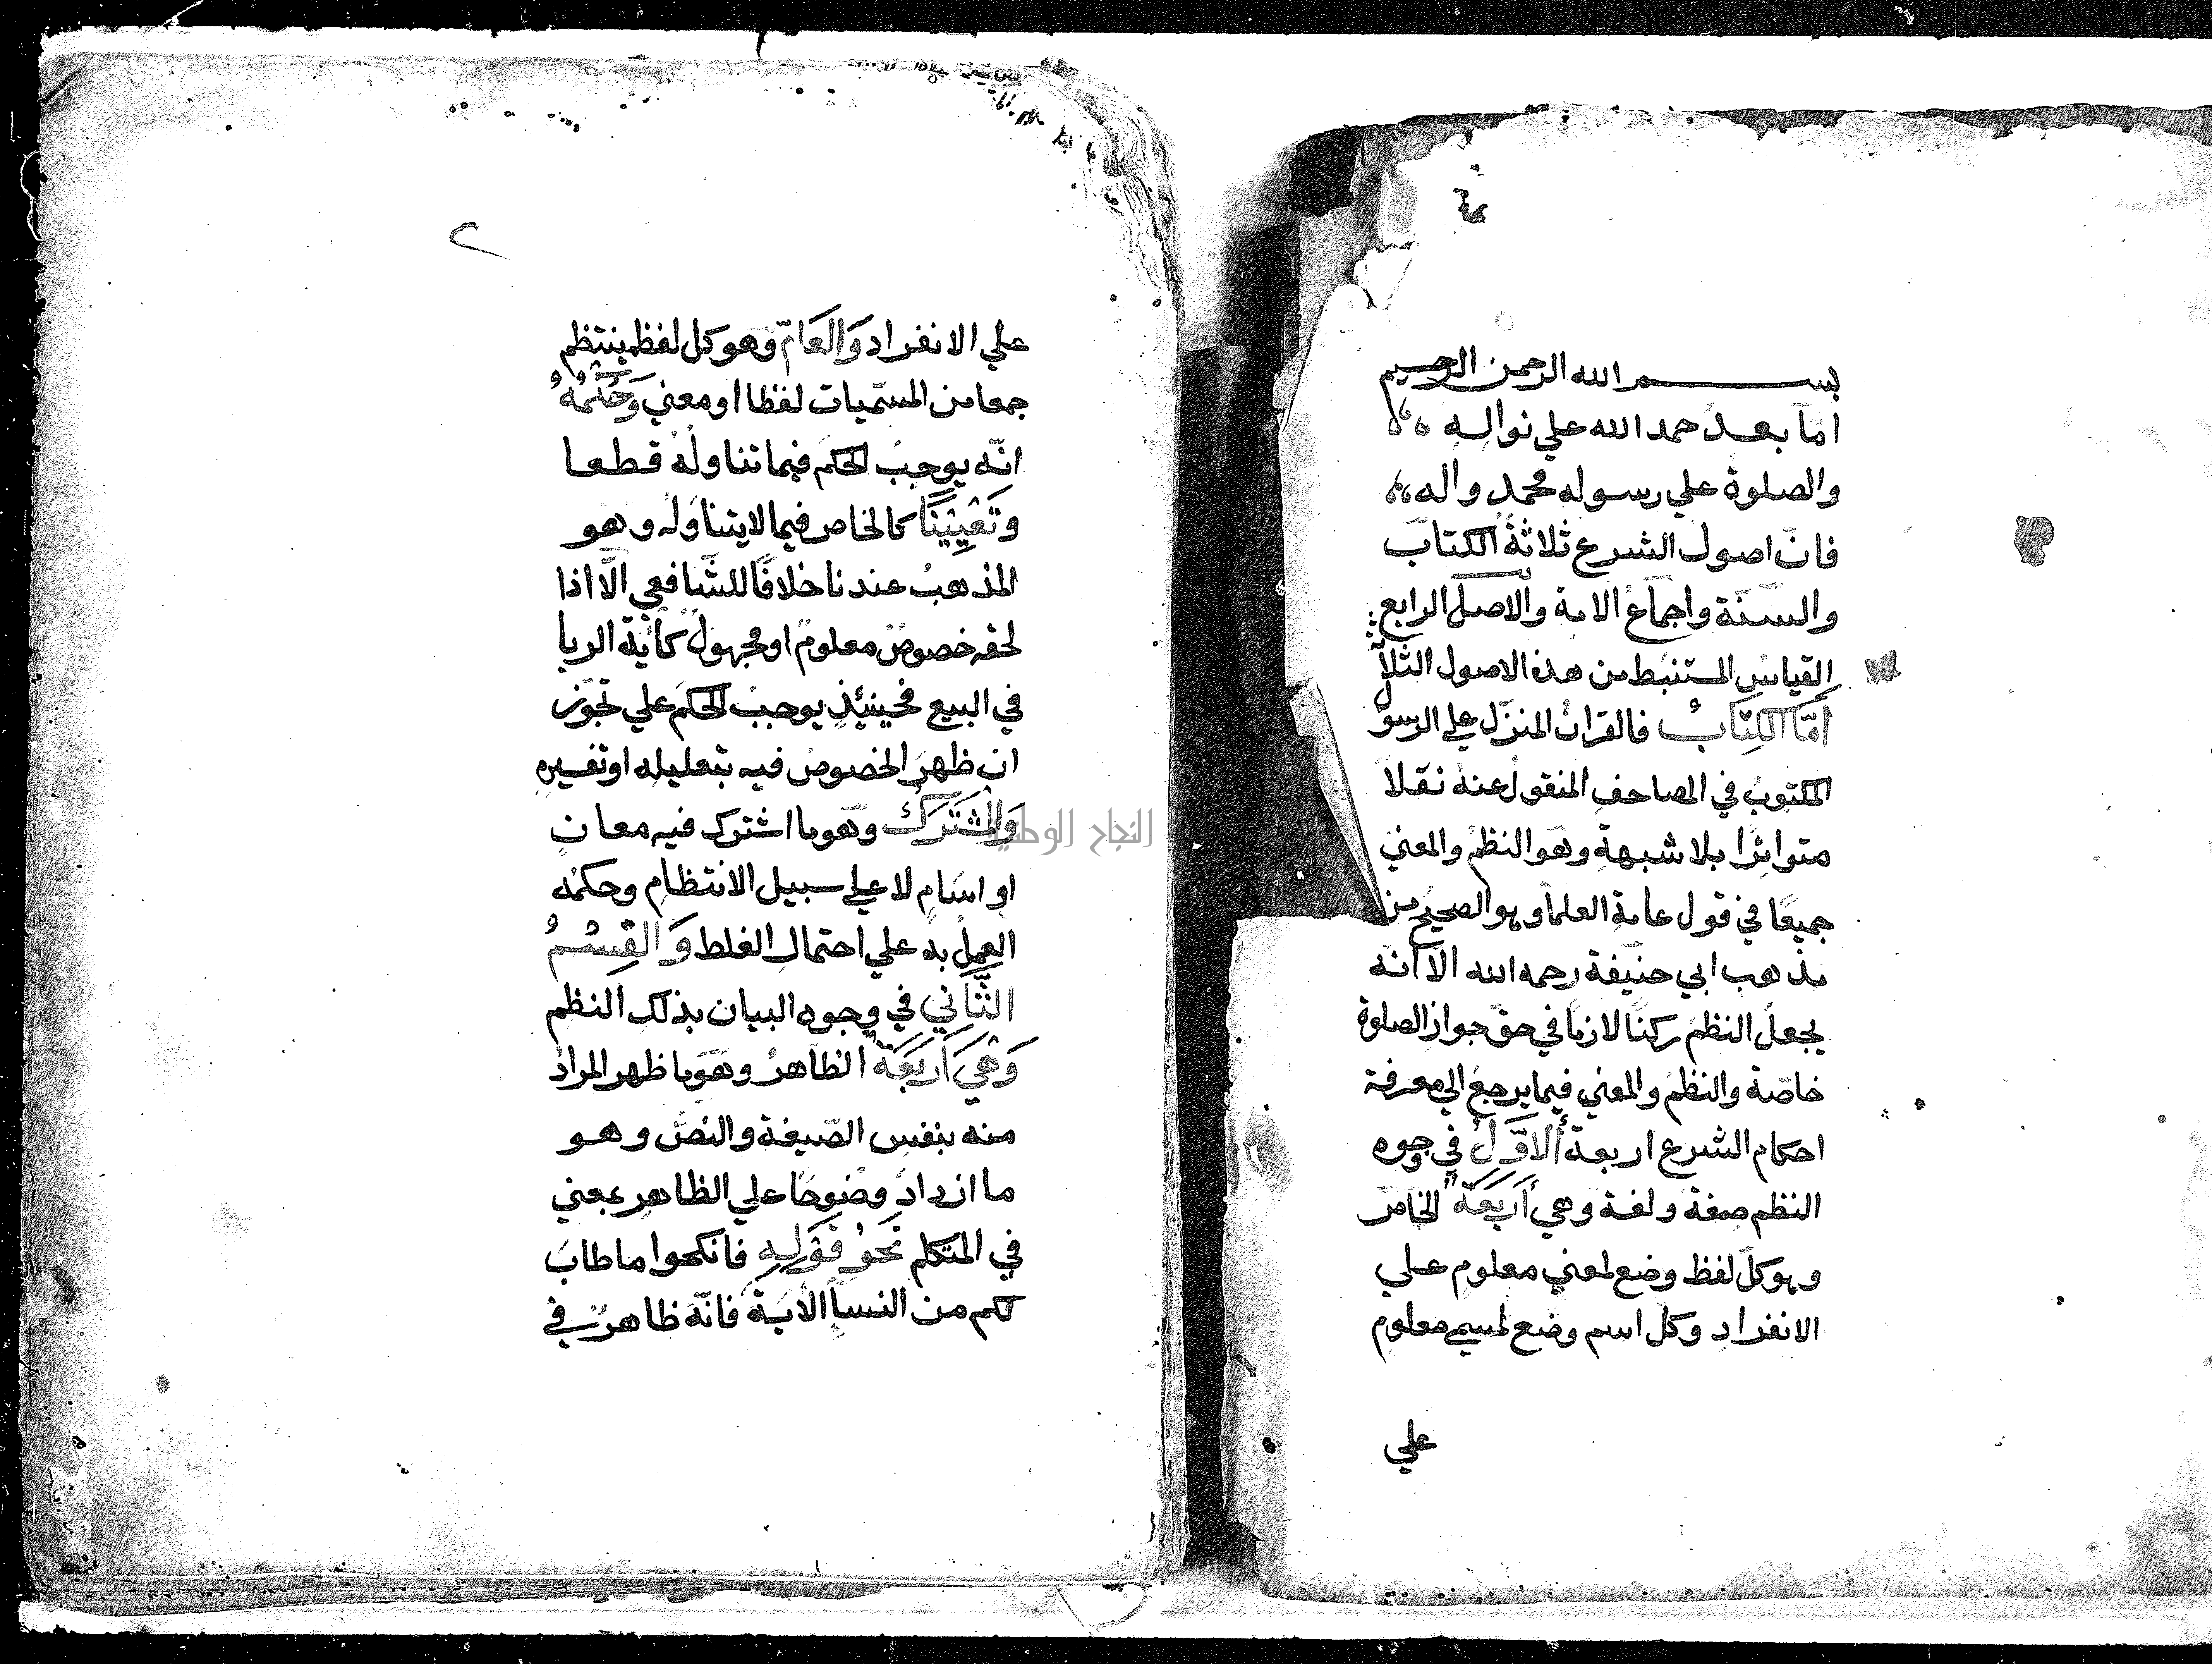 بسم الله الرحمن الرحيم
اما بعد حمد الله علي نواله
والصلوة علي رسوله محمد واله
فان اصول الشرع ثلاثة الكتاب
والسنة واجماع الامة والاصل الرابع
القياس المستنبط من هذه الاصول الثلاثة
أمّا الكِتابُ فالقران المنزل علي الرسول
المكتوب في المصاحف المنقول عنه نقلا
متواترا بلا شبهة وهو النظم والمعني
جميعا في قول عامة العلما وهو الصحيح من
مذهب ابي حنيفة رحمه الله الا انه
يجعل النظم ركنا لازما في حق جواز الصلوة
خاصة والنظم والمعني فيما يرجع الي معرفة
احكام الشرع اربعة ألاوّلُ في وجوه
النظم صغة ولغة وهي أربعة الخاص
وهو كل لفظ وضع لمعني معلوم علي
الانفراد وكل اسم وضع لمسمي معلوم
علي
٢
علي الانفراد وَالعَامّ وهو كل لفظ ينتظم
جمعا من المسمّيات لفظا او معني وَحُكمُهُ
انّه يوجب الحكم فيما تناوله قطعا
وتَعْيِيْنًا كالخاص فيما لا يتناوله وهو
المذهب عندنا خلافا للشّافعي الّا اذا
لحقه خصوص معلوم او مجهول كآية الربا
في البيع فحينئذ يوجب الحكم علي تجوّز
ان ظهر الخصوص فيه بتعليله او تفسيره
وَالمشتَرَكُ وهو ما اشترك فيه معان
او اسام لا علي سبيل الانتظام وحكمه
العمل به علي احتمال الغلط وَالقِسْمُ
الثَّاني في وجوه البيان بذلك النظم
وَهْيَ أرْبَعَة الظاهر وهو ما ظهر المراد
منه بنفس الصّيغة والنص وهو
ما ازداد وضوحا علي الظاهر بمعني
في المتكلم نَحوُ قَوْلِهِ فانكحوا ما طاب
لكم من النسا الاية فانّه ظاهر في
جامعة النجاح الوطنية